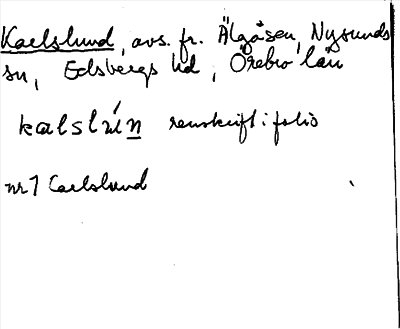 Karlslund, avs. fr. Älgåsen, Nysunds
sn, Edsbergs hd, Örebro län
kalslún renskrift i folio
nr 1 Carlslund